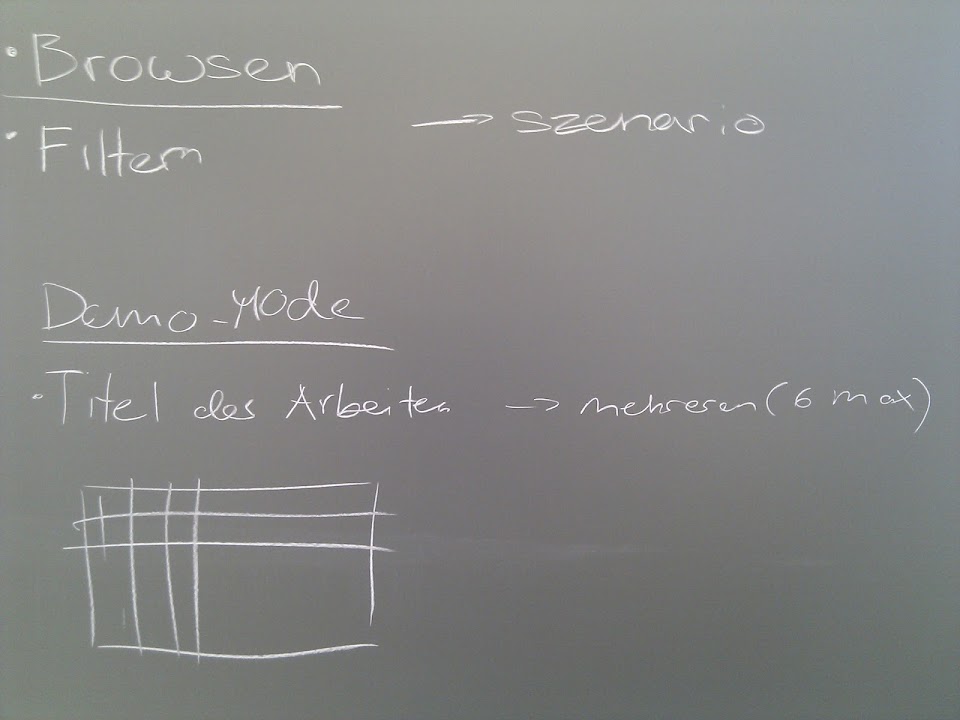 • Browsen
• Filtern
→ szenario
Demo-Mode
• Titel des Arbeiten → mehreren (6 max)